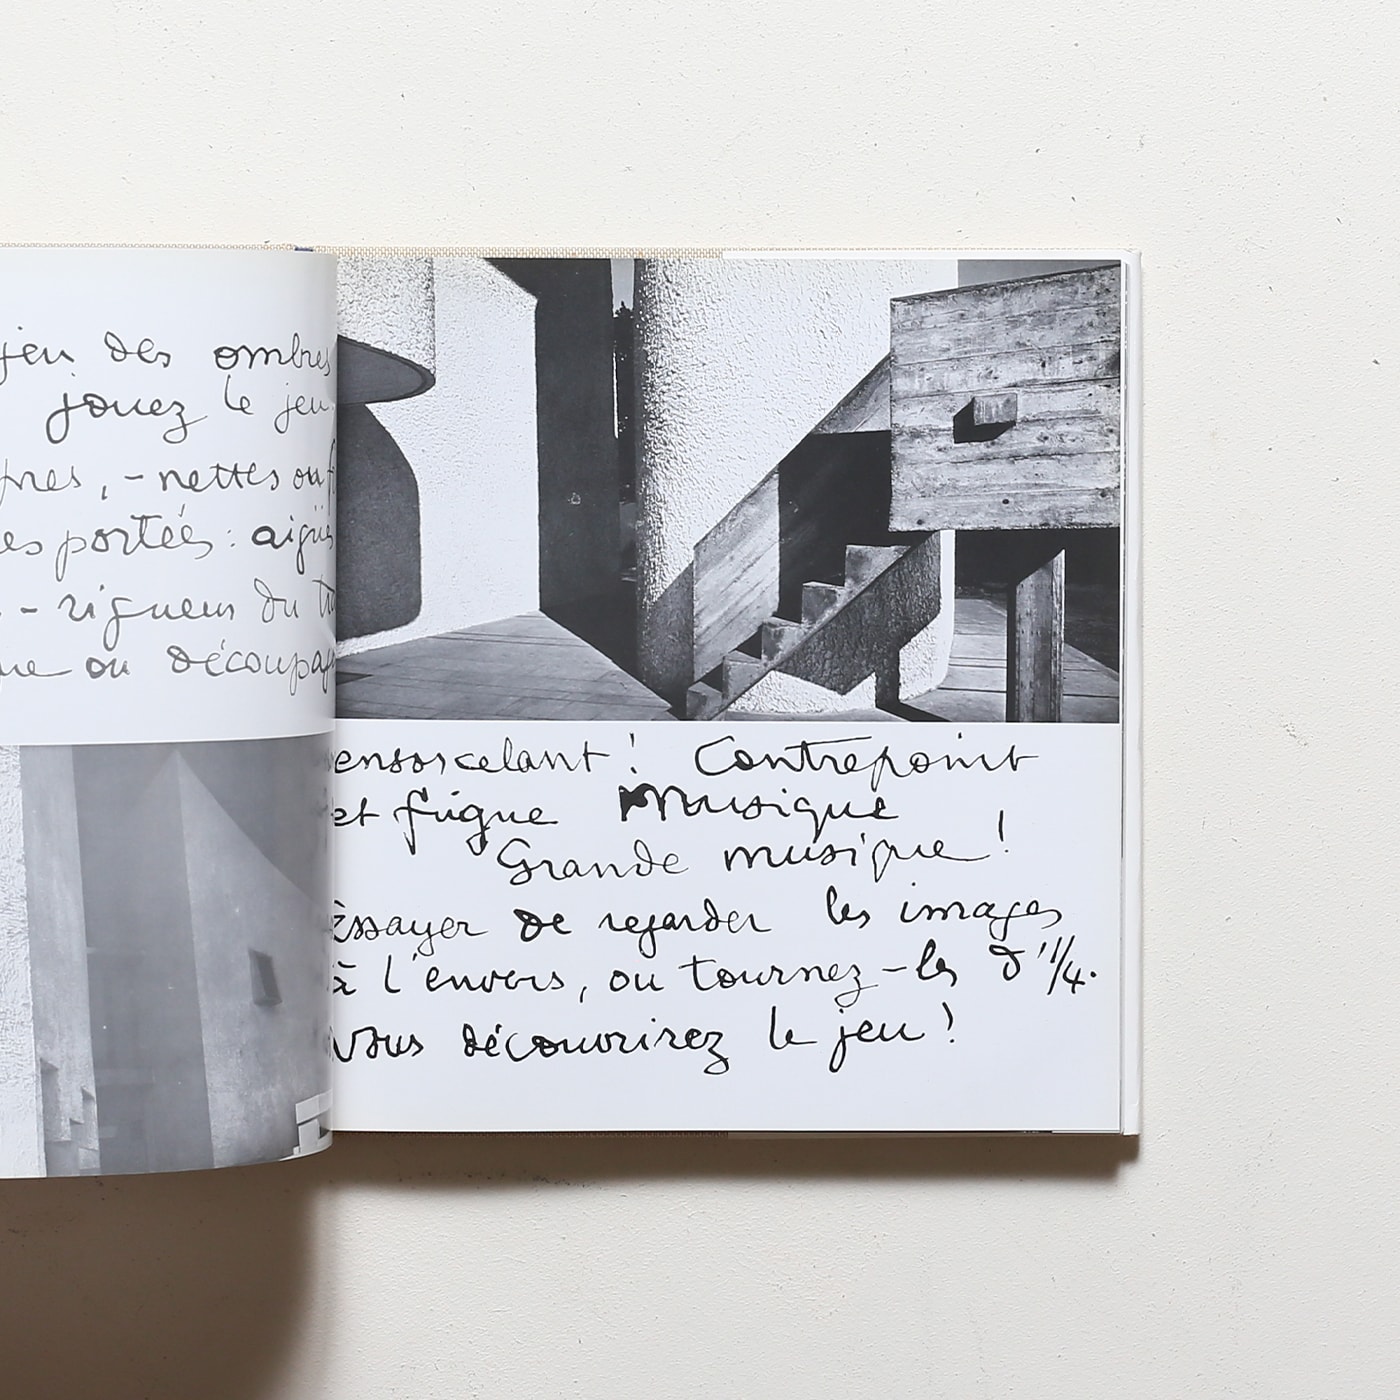 jeu des ombres
jouez le jeu.
nettes ou
portées : aigües
- rigueur du
ou découpage
ensorcelant ! Contrepoint
et fugue Musique
Grande musique !
Essayer de regarder les images
à l'envers, ou tournez-les d'1/4.
Vous découvrirez le jeu !